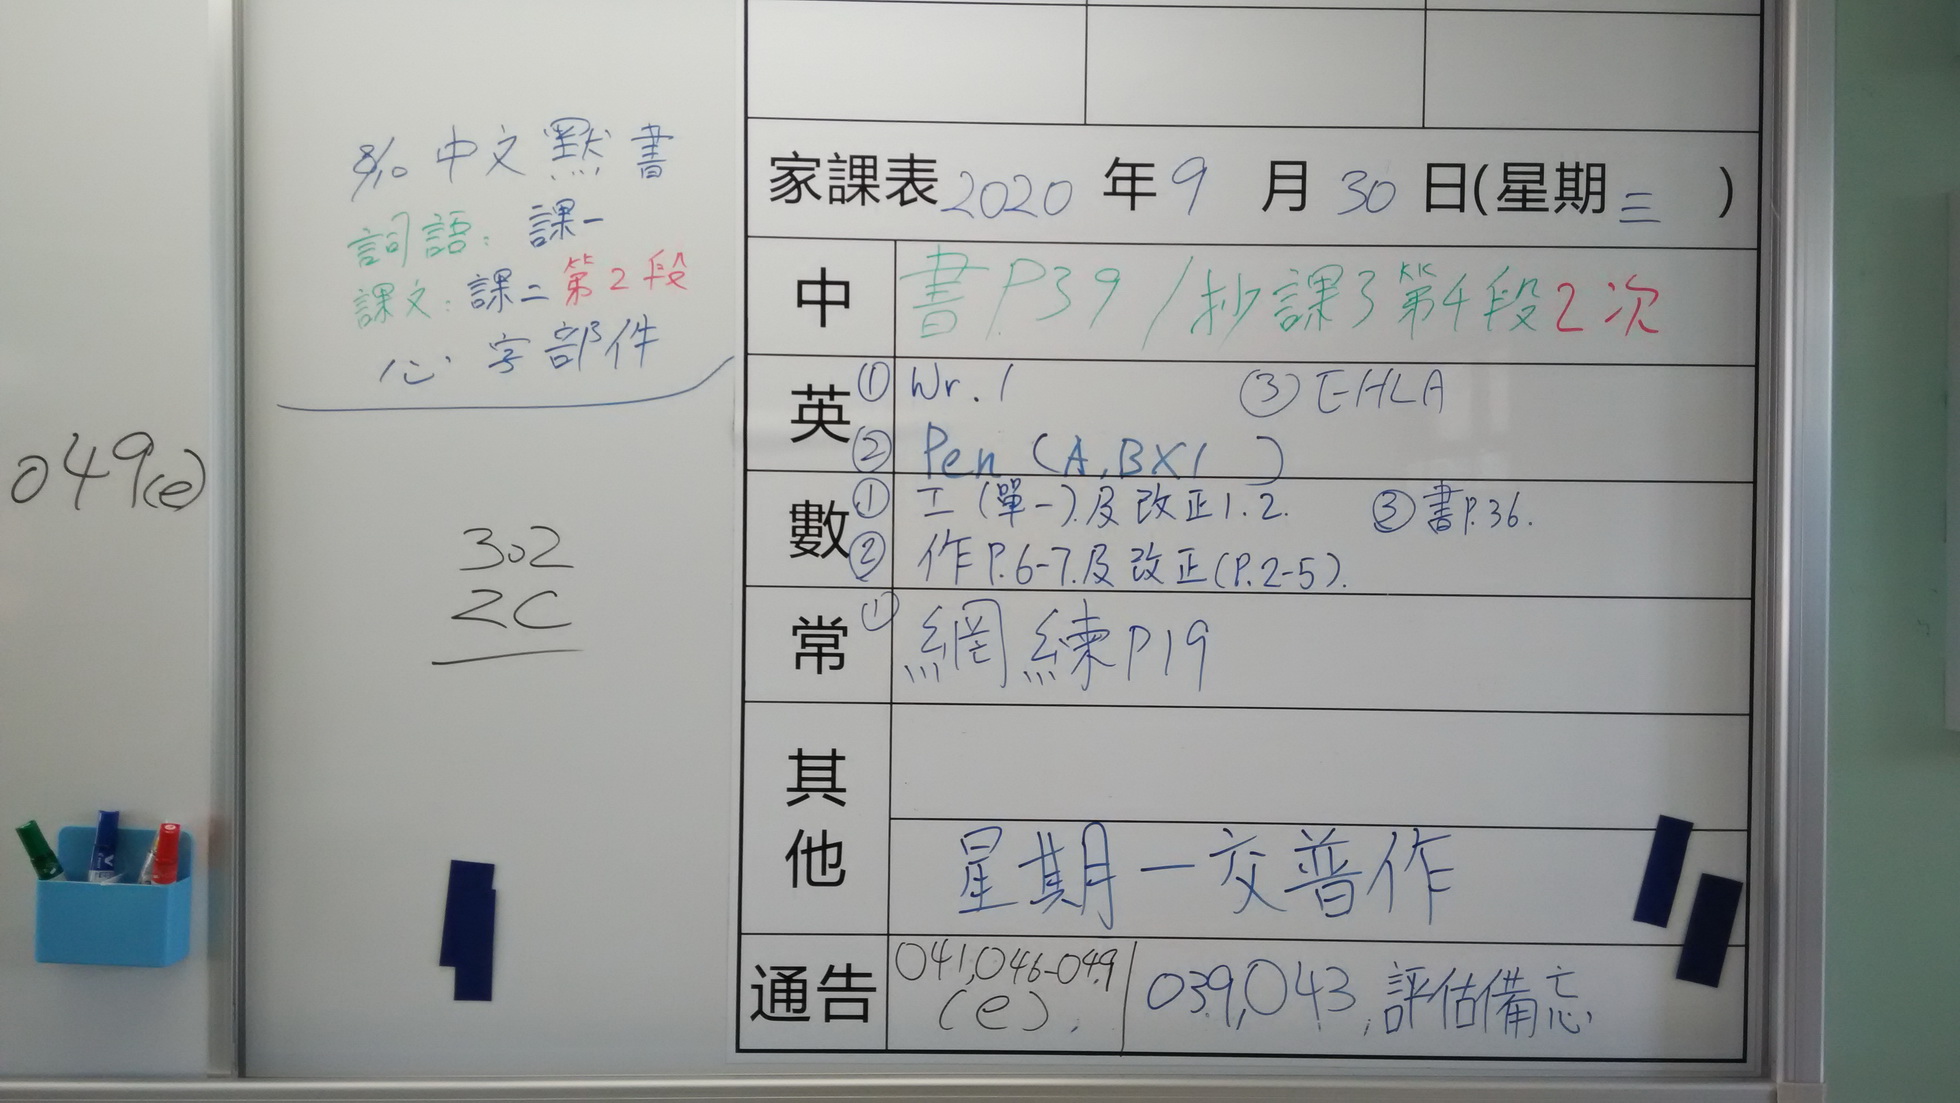 8/10 中文默書
詞語：課一
課文：課二 第2段
心字部件
049(e)
302
2C
家課表 2020 年 9 月 30 日(星期三)
中 書P39/抄課3第4段2次
英 ① Wr. 1 ③ EHLA
② Pen (A,BX1 )
數 ① 工(單一).及改正1.2. ③書P.36.
② 作P.6-7.及改正(P.2-5).
常 ① 網練P19
其他
星期一交普作
通告 041,046-049 (e). / 039,043,評估備忘